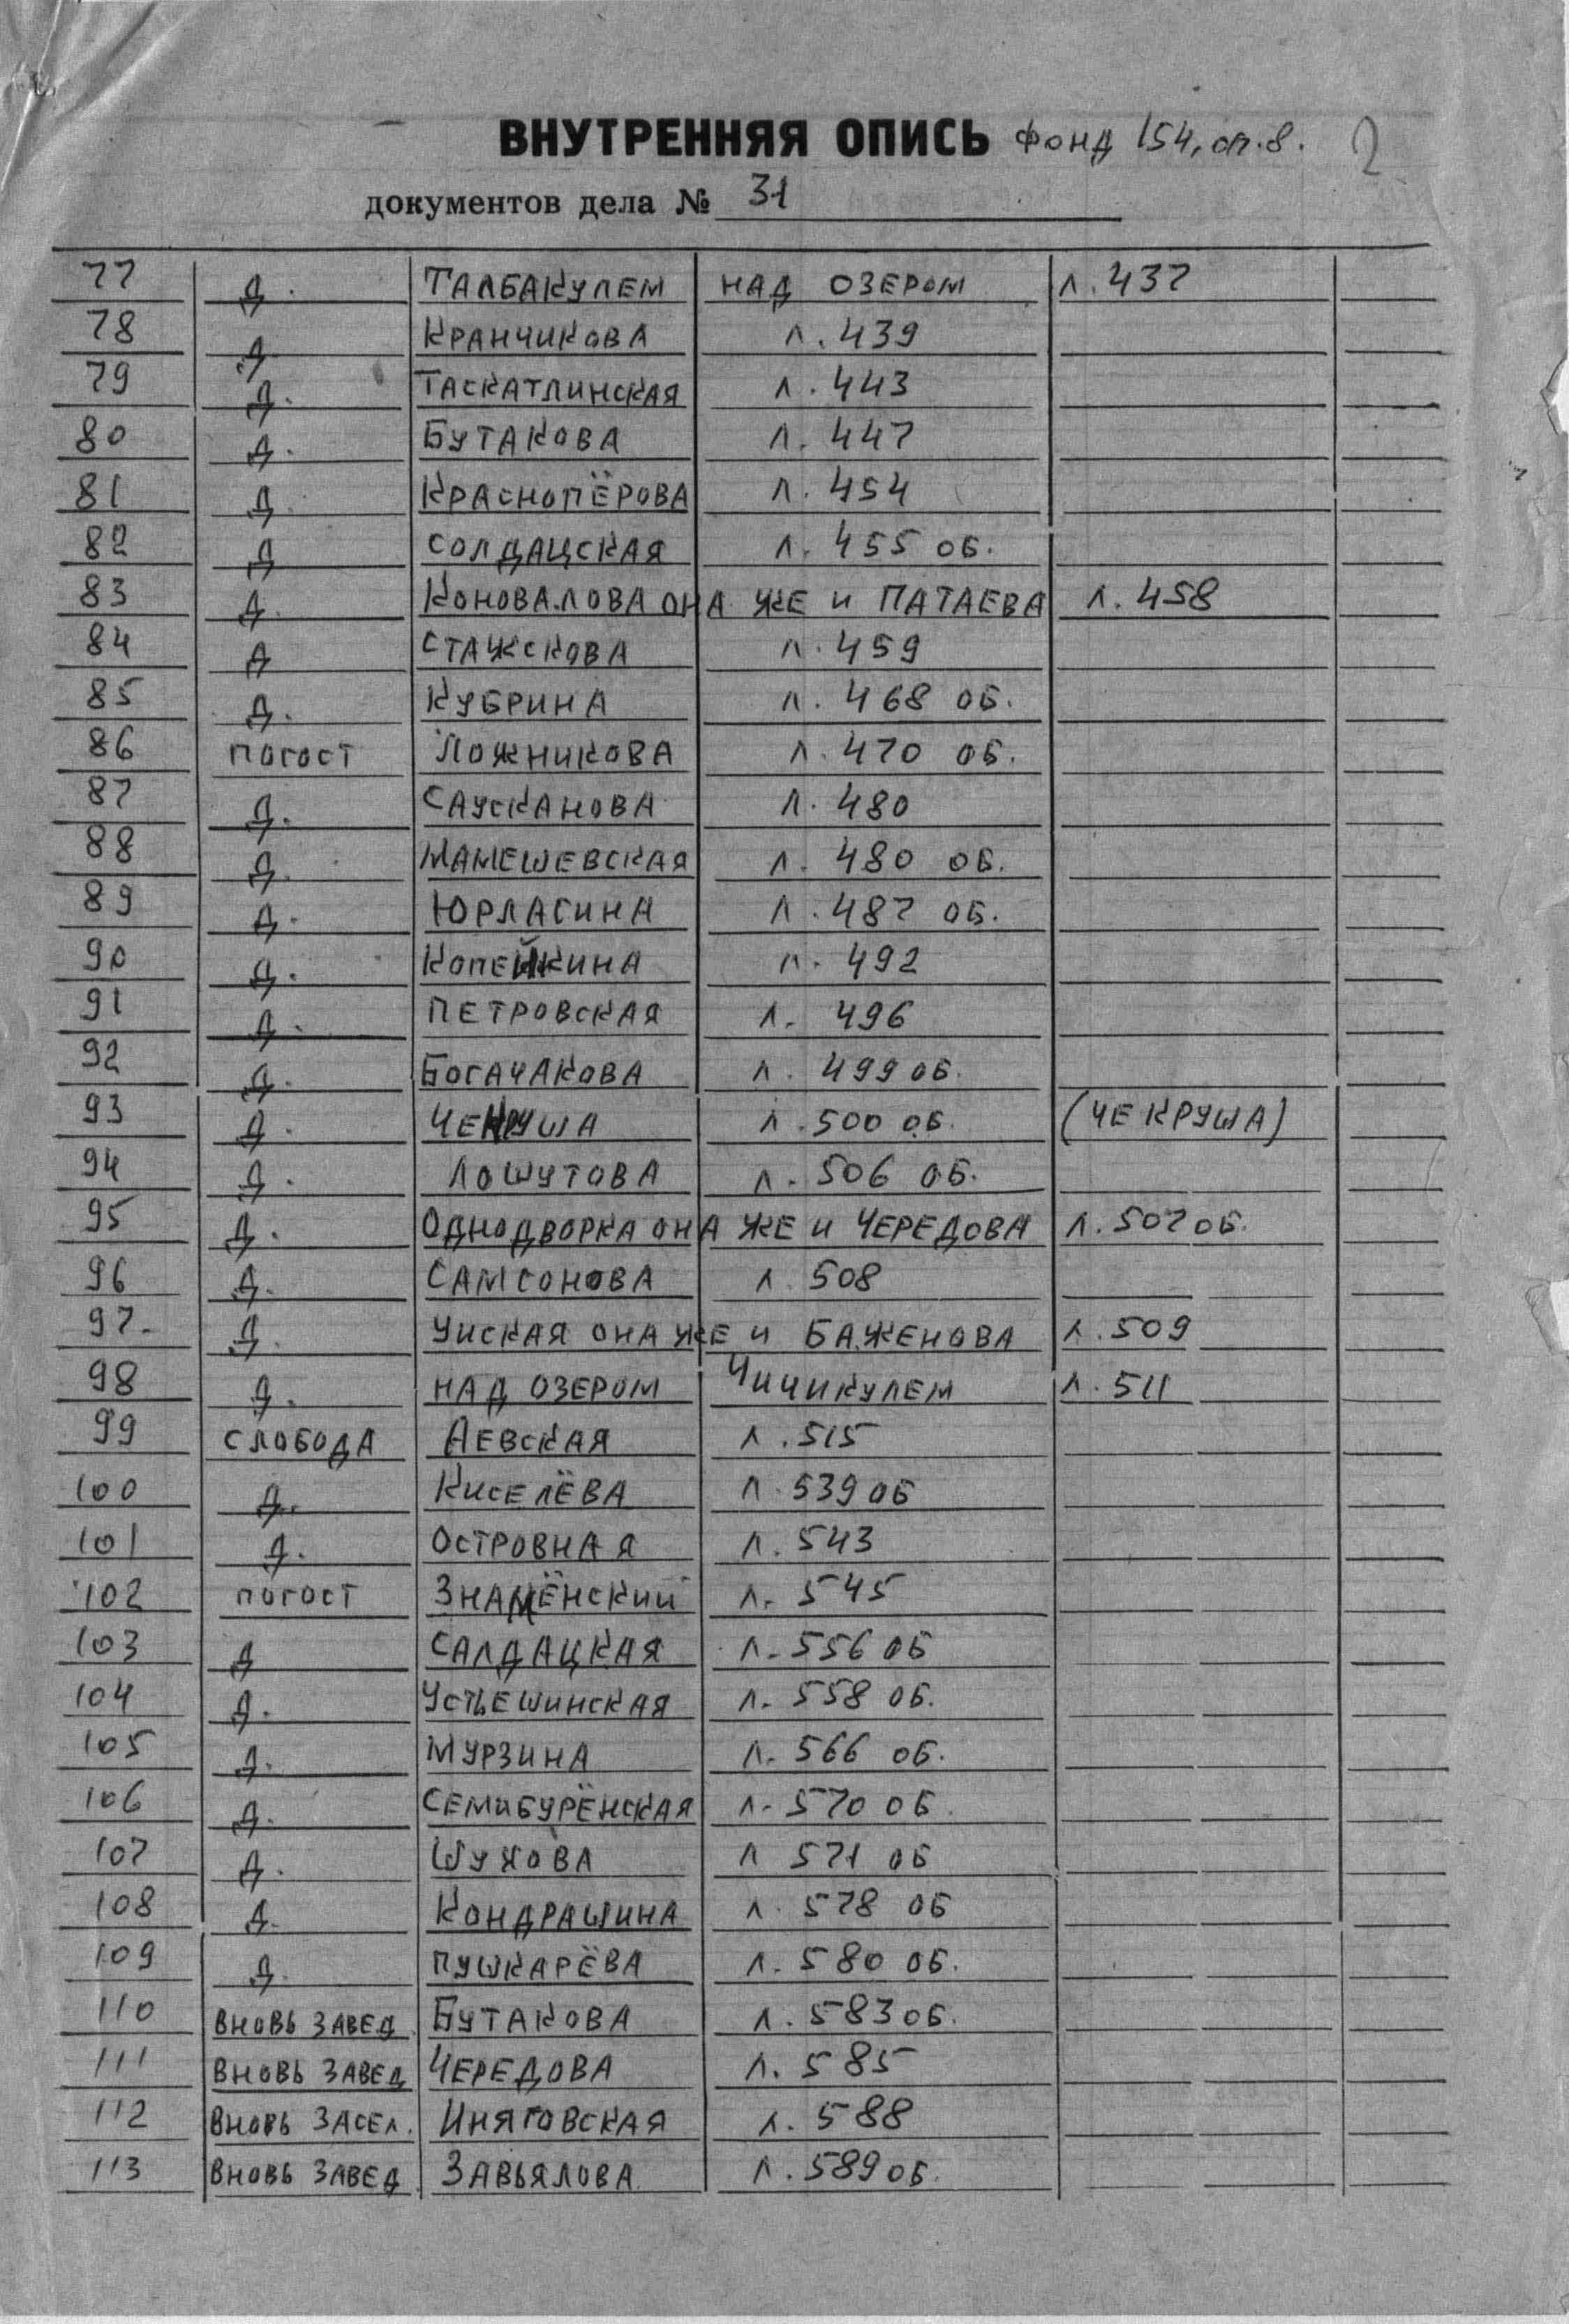 ВНУТРЕННЯЯ ОПИСЬ ФОНД 154, ОП.8. 2
документов дела № 31
77 Д. ТАЛБАКУЛЕМ НАД ОЗЕРОМ Л.437
78 Д. КРАНЧИКОВА Л.439
79 Д. ТАСКАТЛИНСКАЯ Л.443
80 Д. БУТАКОВА Л.447
81 Д. КРАСНОПЁРОВА Л.454
82 Д СОЛДАЦСКАЯ Л.455 ОБ.
83 Д. КОНОВАЛОВА ОНА ЖЕ И ПАТАЕВА Л.458
84 Д СТАЖСКОВА Л.459
85 Д. КУБРИНА Л.468 ОБ.
86 ПОГОСТ ЛОЖНИКОВА Л.470 ОБ.
87 Д. САУСКАНОВА Л.480
88 Д. МАМЕШЕВСКАЯ Л.480 ОБ.
89 Д. ЮРЛАГИНА Л.487 ОБ.
90 Д. КОПЕЙКИНА Л.492
91 Д. ПЕТРОВСКАЯ Л.496
92 Д. БОГАЧАКОВА Л.499 ОБ.
93 Д. ЧЕКРУША Л.500 ОБ. (ЧЕКРУША)
94 Д. ЛОШУТОВА Л.506 ОБ.
95 Д. ОДНОДВОРКА ОНА ЖЕ И ЧЕРЕДОВА Л.507 ОБ.
96 Д. САМСОНОВА Л.508
97. Д. УИСКАЯ ОНА ЖЕ И БАЖЕНОВА Л.509
98 Д. НАД ОЗЕРОМ ЧИЧИКУЛЕМ Л.511
99 СЛОБОДА АЕВСКАЯ Л.515
100 Д. КИСЕЛЁВА Л.539 ОБ
101 Д. ОСТРОВНАЯ Л.543
102 ПОГОСТ ЗНАМЁНСКИЙ Л.545
103 Д САЛДАЦКАЯ Л.556 ОБ
104 Д. УСТЬЕШИНСКАЯ Л.558 ОБ.
105 Д. МУРЗИНА Л.566 ОБ.
106 Д. СЕМИБУРЁНСКАЯ Л.570 ОБ.
107 Д. ШУХОВА Л 571 ОБ
108 Д. КОНДРАШИНА Л.578 ОБ
109 Д. ПУШКАРЁВА Л.580 ОБ.
110 ВНОВЬ ЗАВЕД. БУТАКОВА Л.583 ОБ.
111 ВНОВЬ ЗАВЕД ЧЕРЕДОВА Л.585
112 ВНОВЬ ЗАСЕЛ. ИНЯГОВСКАЯ Л.588
113 ВНОВЬ ЗАВЕД ЗАВЬЯЛОВА Л.589 ОБ.